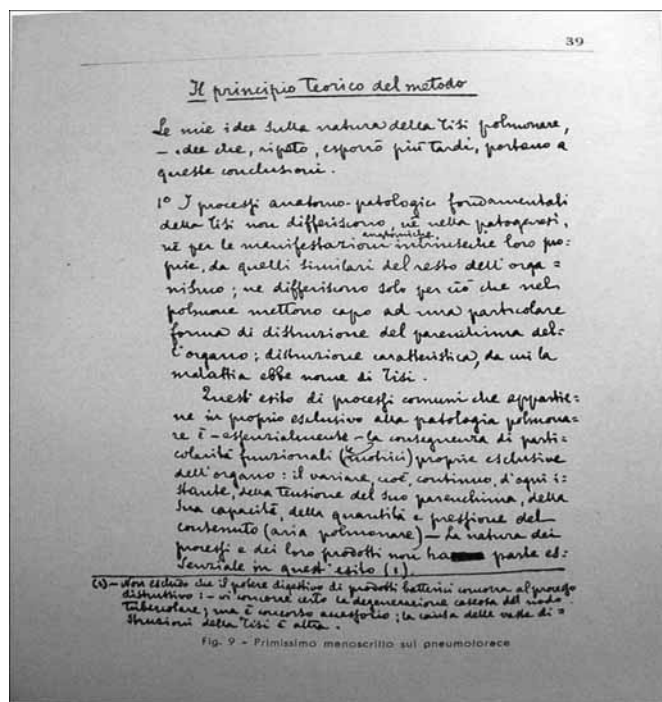 39
Il principio teorico del metodo
Le mie idee sulla natura della tisi polmonare,
– idee che, ripeto, esporrò più tardi, portano a
queste conclusioni.
1° I processi anatomo-patologici fondamentali
della tisi non differiscono, nè nella patogenesi,
nè per le manifestazioni anatomiche intrinseche loro pro=
prie, da quelli similari del resto dell'orga=
nismo; ne differiscono solo per ciò che nel
polmone mettono capo ad una particolare
forma di distruzione del parenchima del=
l'organo; distruzione caratteristica, da cui la
malattia ebbe nome di Tisi.
Quest'esito di processi comuni che appartie=
ne in proprio esclusivo alla patologia polmona=
re è – essenzialmente – la conseguenza di parti=
colarità funzionali (motrici) proprie esclusive
dell'organo: il variare, cioè, continuo, d'ogni i=
stante, della tensione del suo parenchima, della
sua capacità, della quantità e pressione del
contenuto (aria polmonare) – La natura dei
processi e dei loro prodotti non ha parte es=
senziale in quest'esito (1).
(1) – Non escludo che il potere digestivo di prodotti batterici concorra al processo
distruttivo: – vi concorre certo la degenerazione caseosa del nodo
tubercolare; ma è concorso accessorio; la causa delle vaste di=
struzioni della Tisi è altra.
Fig. 9 – Primissimo menoscritto sul pneumotorece